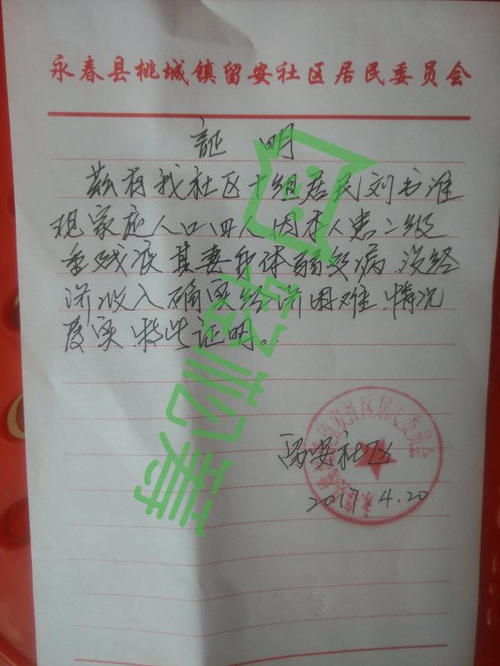 永春县桃城镇留安社区居民委员会
証 明
兹有我社区十组居民刘书淮
现家庭人口四人 因本人患二级
残疾 其妻身体弱多病 没经
济收入 确实经济困难 情况
属实 特此证明。
留安社区
2017.4.20
轻松筹